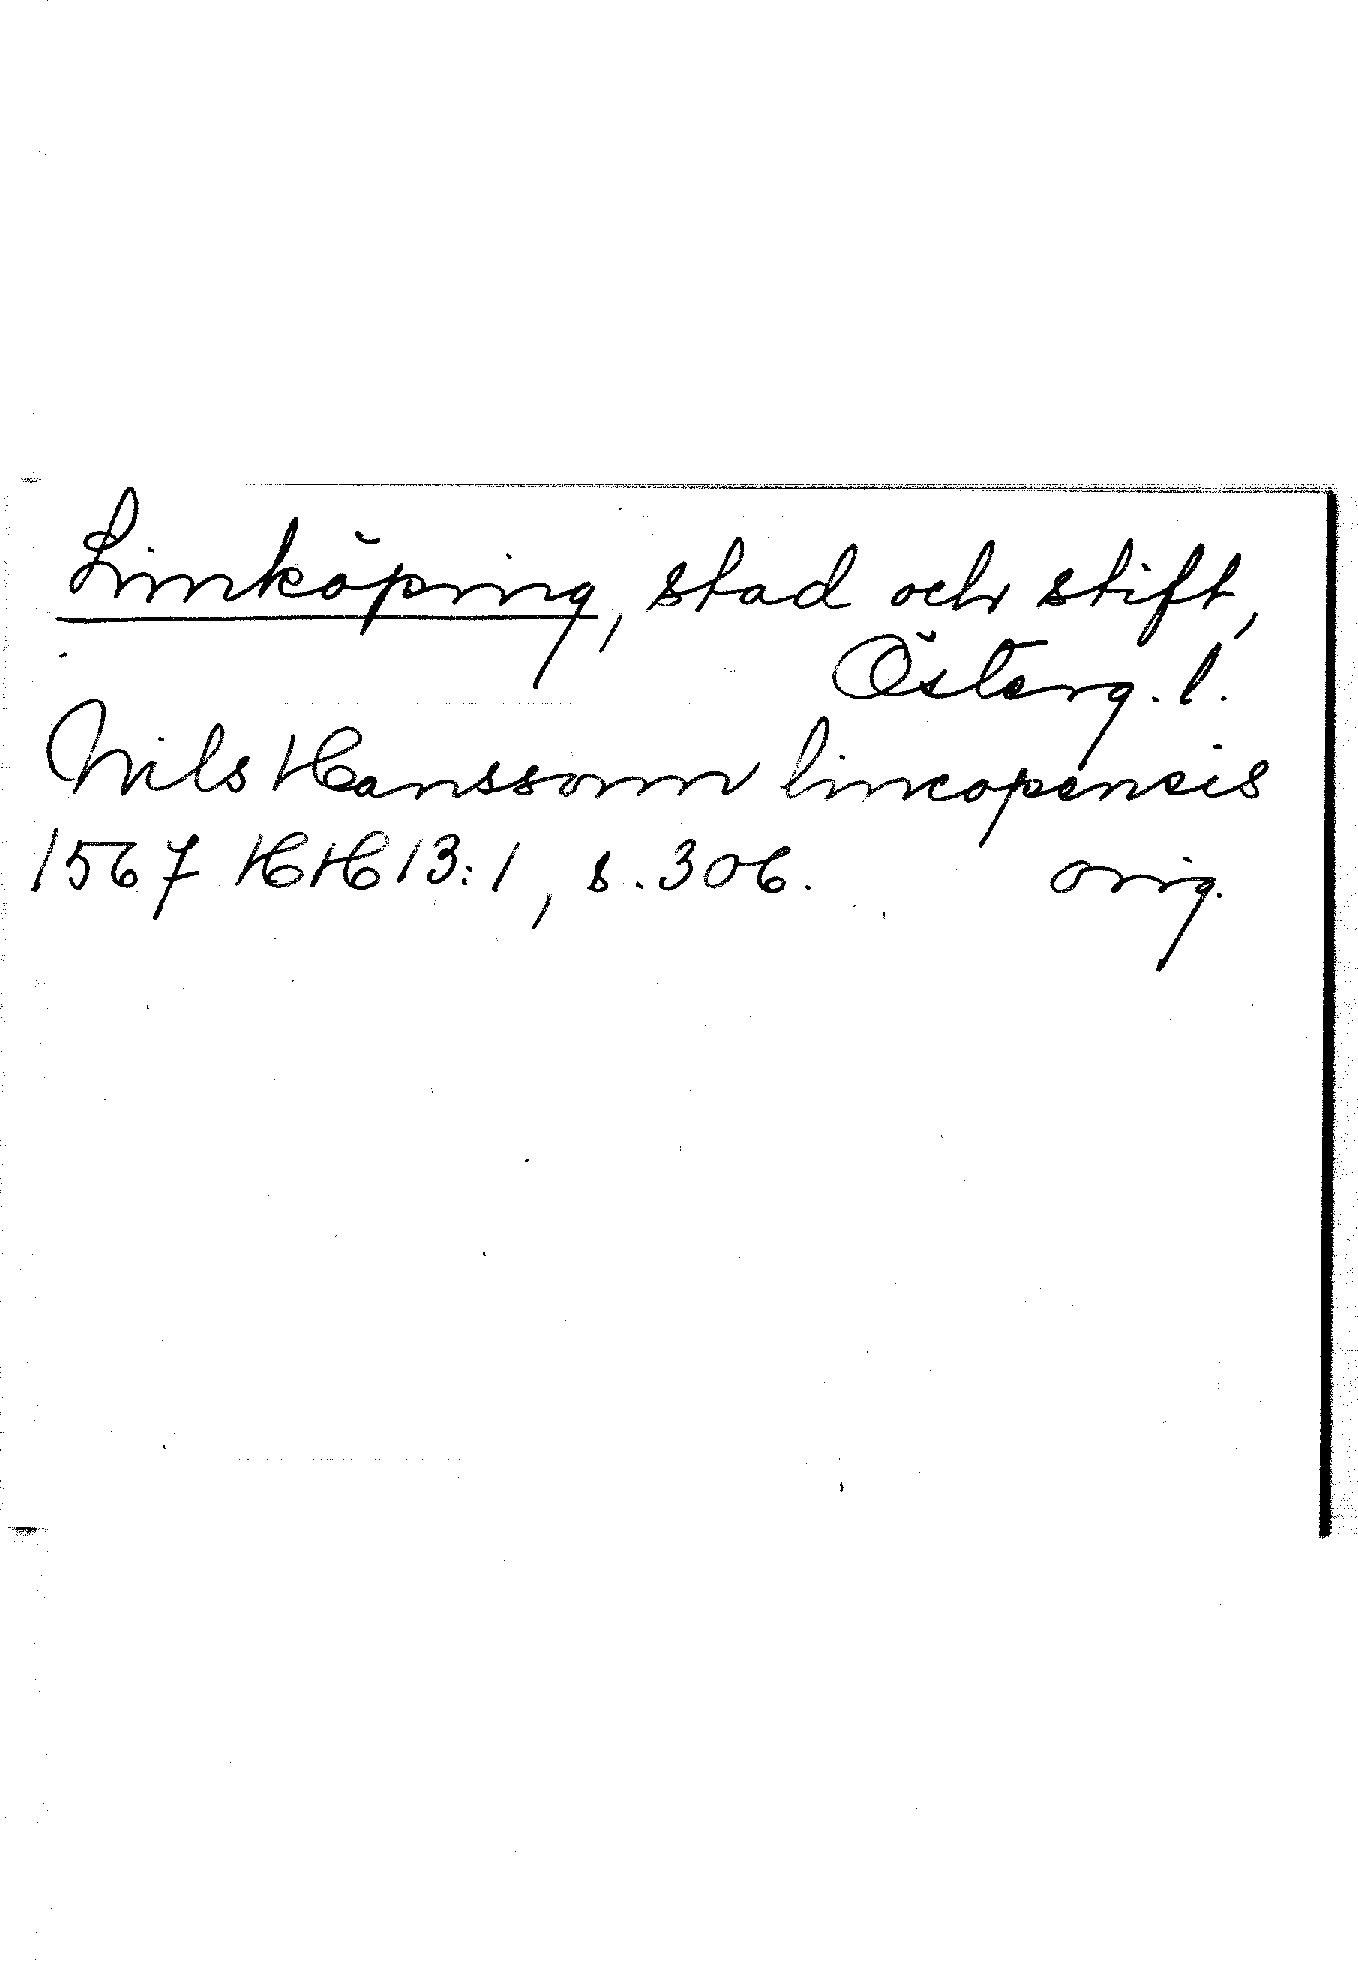 Linköping, stad och stift,
Österg. l.
Nils Hanssonn lincopensis
1567 HH 13:1, s. 306. orig.